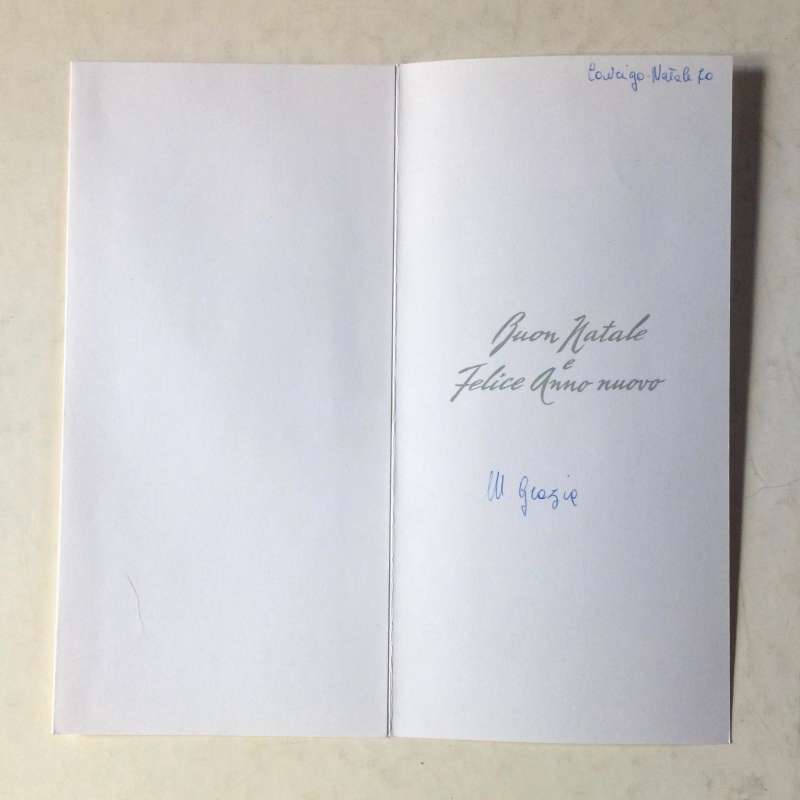 Lonigo-Natale 70
Buon Natale
e
Felice Anno nuovo
M Grazia